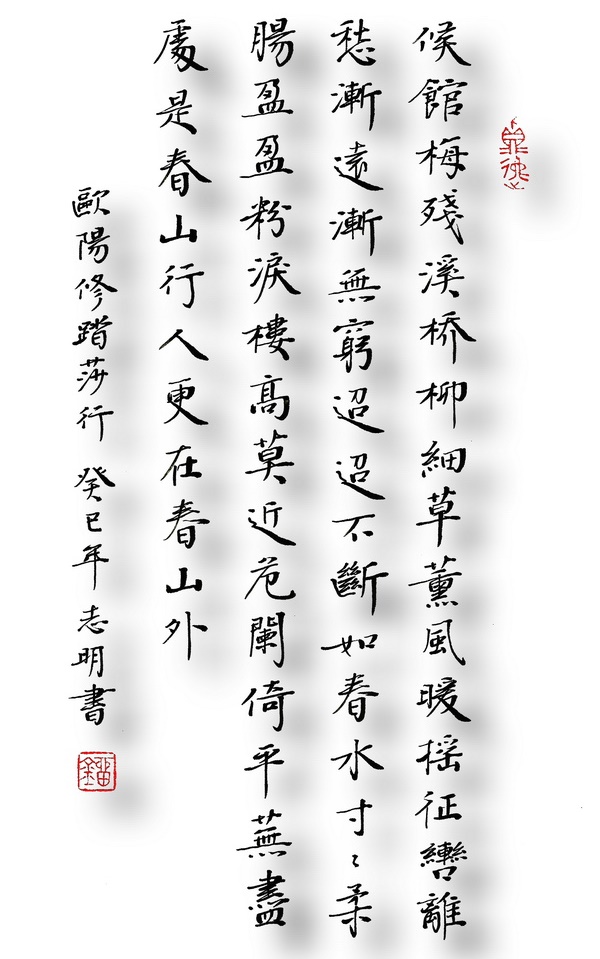 候館梅殘溪桥柳細草薰風暖摇征轡離
愁漸遠漸無窮迢迢不斷如春水寸〻柔
腸盈盈粉淚樓髙莫近危闌倚平蕪盡
處是春山行人更在春山外
歐陽修踏莎行 癸巳年志明書